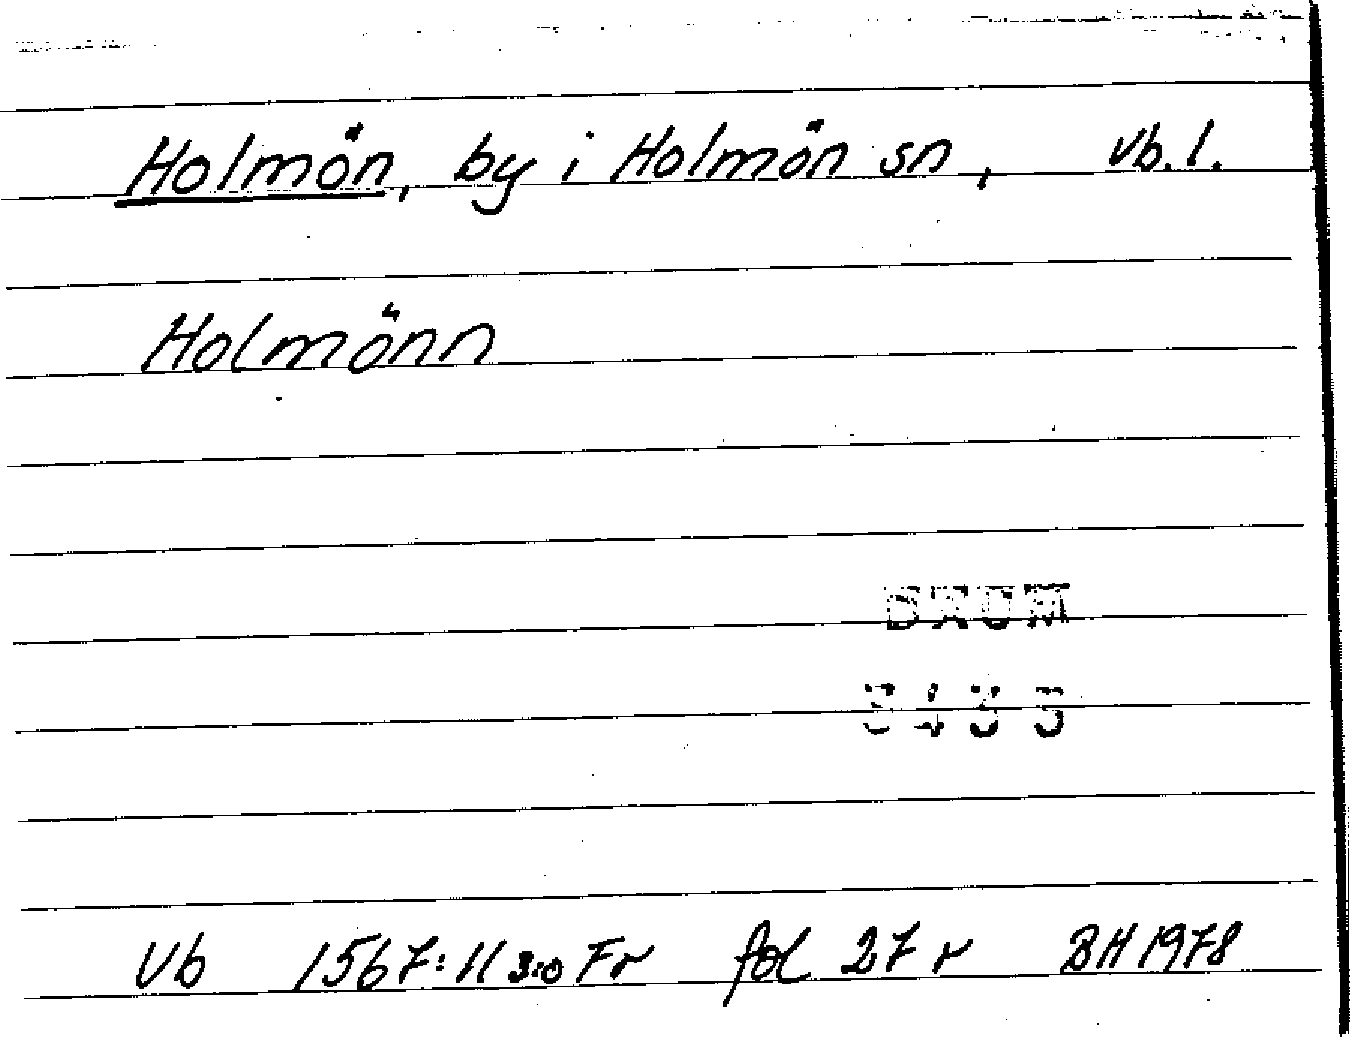 Holmön, by i Holmön sn, Vb.l.
Holmönn
DAUM
3435
Vb 1567:11 3:0 Fr fol 27 r BH 1978